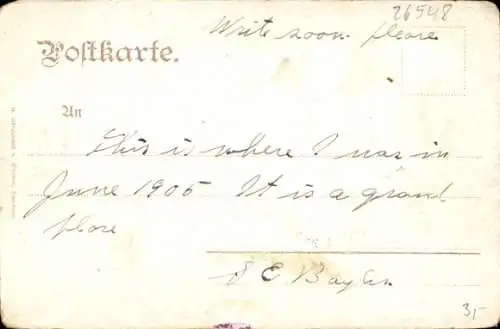 26548
Write soon please
Postkarte.
An
This is where I was in
June 1905 It is a grand
place
S E Bayler
3,-